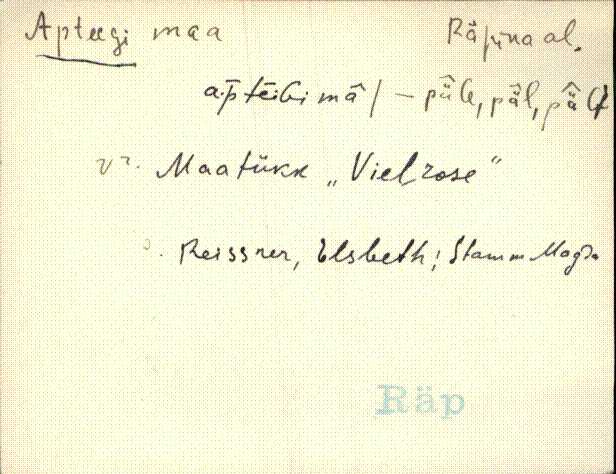 Apteegi maa Räpina al.
ap̄tēGi mā̂ / – pǟ̂le, pǟ̂l, pǟ̂lt
vr. Maatükk „Vielrose"
Reissner, Elsbeth; Stamm Magda
Räp